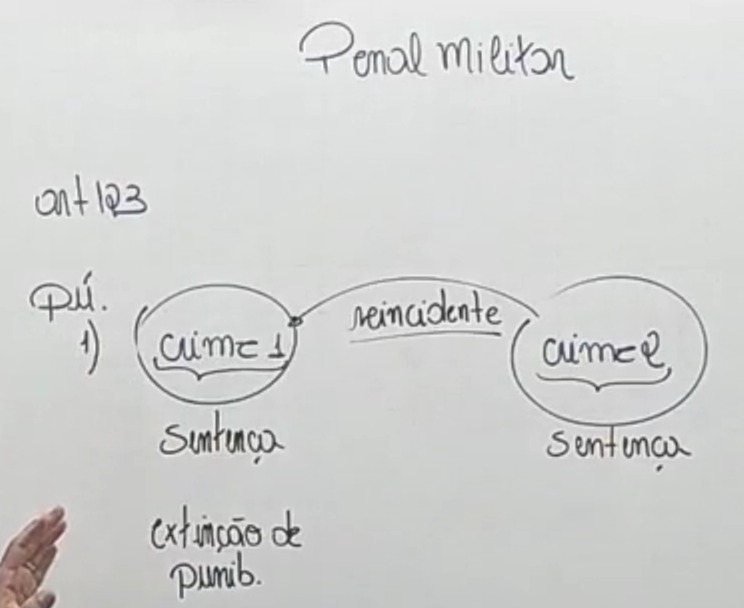 Penal militar
art 123
p.ú.
1) crime 1 reincidente crime 2
Sentença sentença
extinção de
punib.